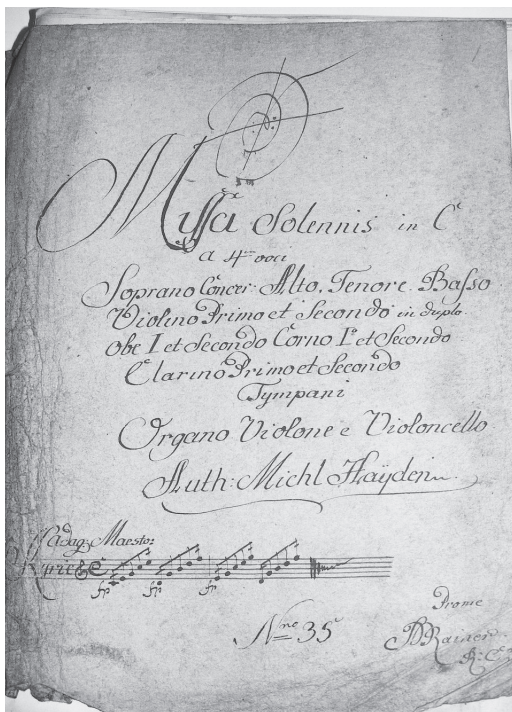 Missa Solennis in C
a 4tro voci
Soprano Concer: Alto. Tenore. Basso
Violino Primo et Secondo in duplo.
Obe I et Secondo Corno I° et Secondo
Clarino Primo et Secondo
Tympani
Organo Violone e Violoncello
Auth: Michl Haÿden
adag: Maesto:
Kyrie
fp fp fp
Nro 35
Prome
PRainer